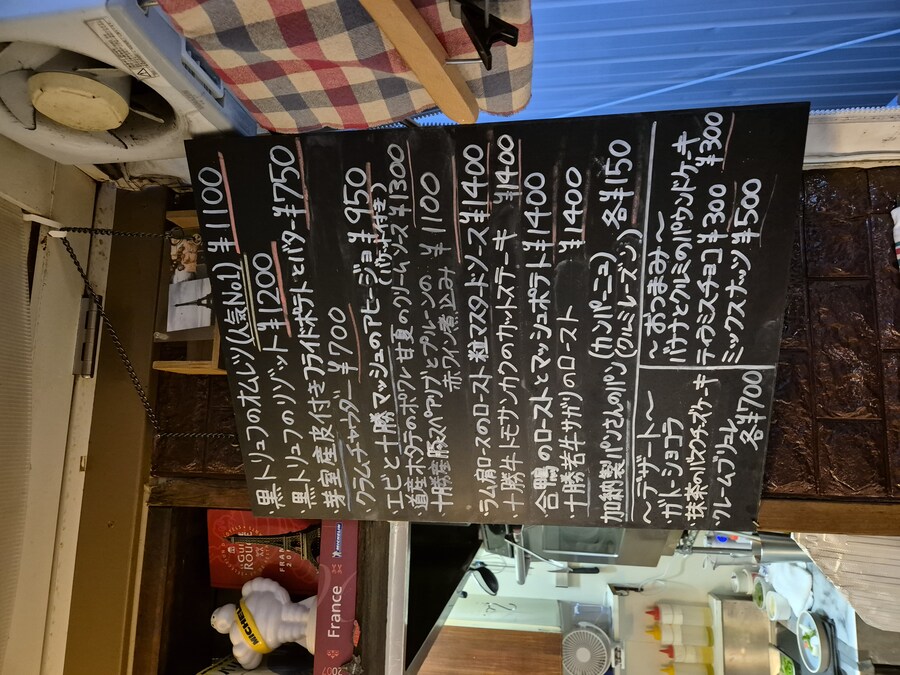 ・黒トリュフのオムレツ(人気No1) ¥1100
・黒トリュフのリゾット ¥1200
・芽室産皮付きフライドポテトとバター ¥750
・クラムチャウダー ¥700
・エビと十勝マッシュのアヒージョ ¥950
(バケット付き)
道産ホタテのポワレ 甘夏のクリームソース ¥1300
・十勝産豚スペアリブとプルーンの
赤ワイン煮込み ¥1100
・ラム肩ロースのロースト 粒マスタードソース ¥1400
・十勝牛トモサンカクのカットステーキ ¥1400
・合鴨のローストとマッシュポテト ¥1400
・十勝若牛サガリのロースト ¥1400
加納製パンさんのパン (カンパーニュ) 各¥150
(クルミレーズン)
～デザート～
・ガトーショコラ
・抹茶のバスクチーズケーキ
・クレームブリュレ
各¥700
～おつまみ～
バナナとクルミのパウンドケーキ
¥300
ティラミスチョコ ¥300
ミックスナッツ ¥500
MICHELIN
GUIDE
ROUGE
FRANCE
France
MICHELIN
2007